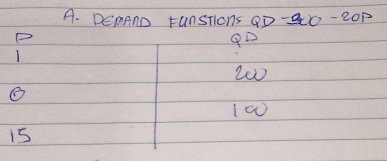 A. DEMAND FUNSTIONS QD = 300 - 20P
P QD
1
200
6
100
15